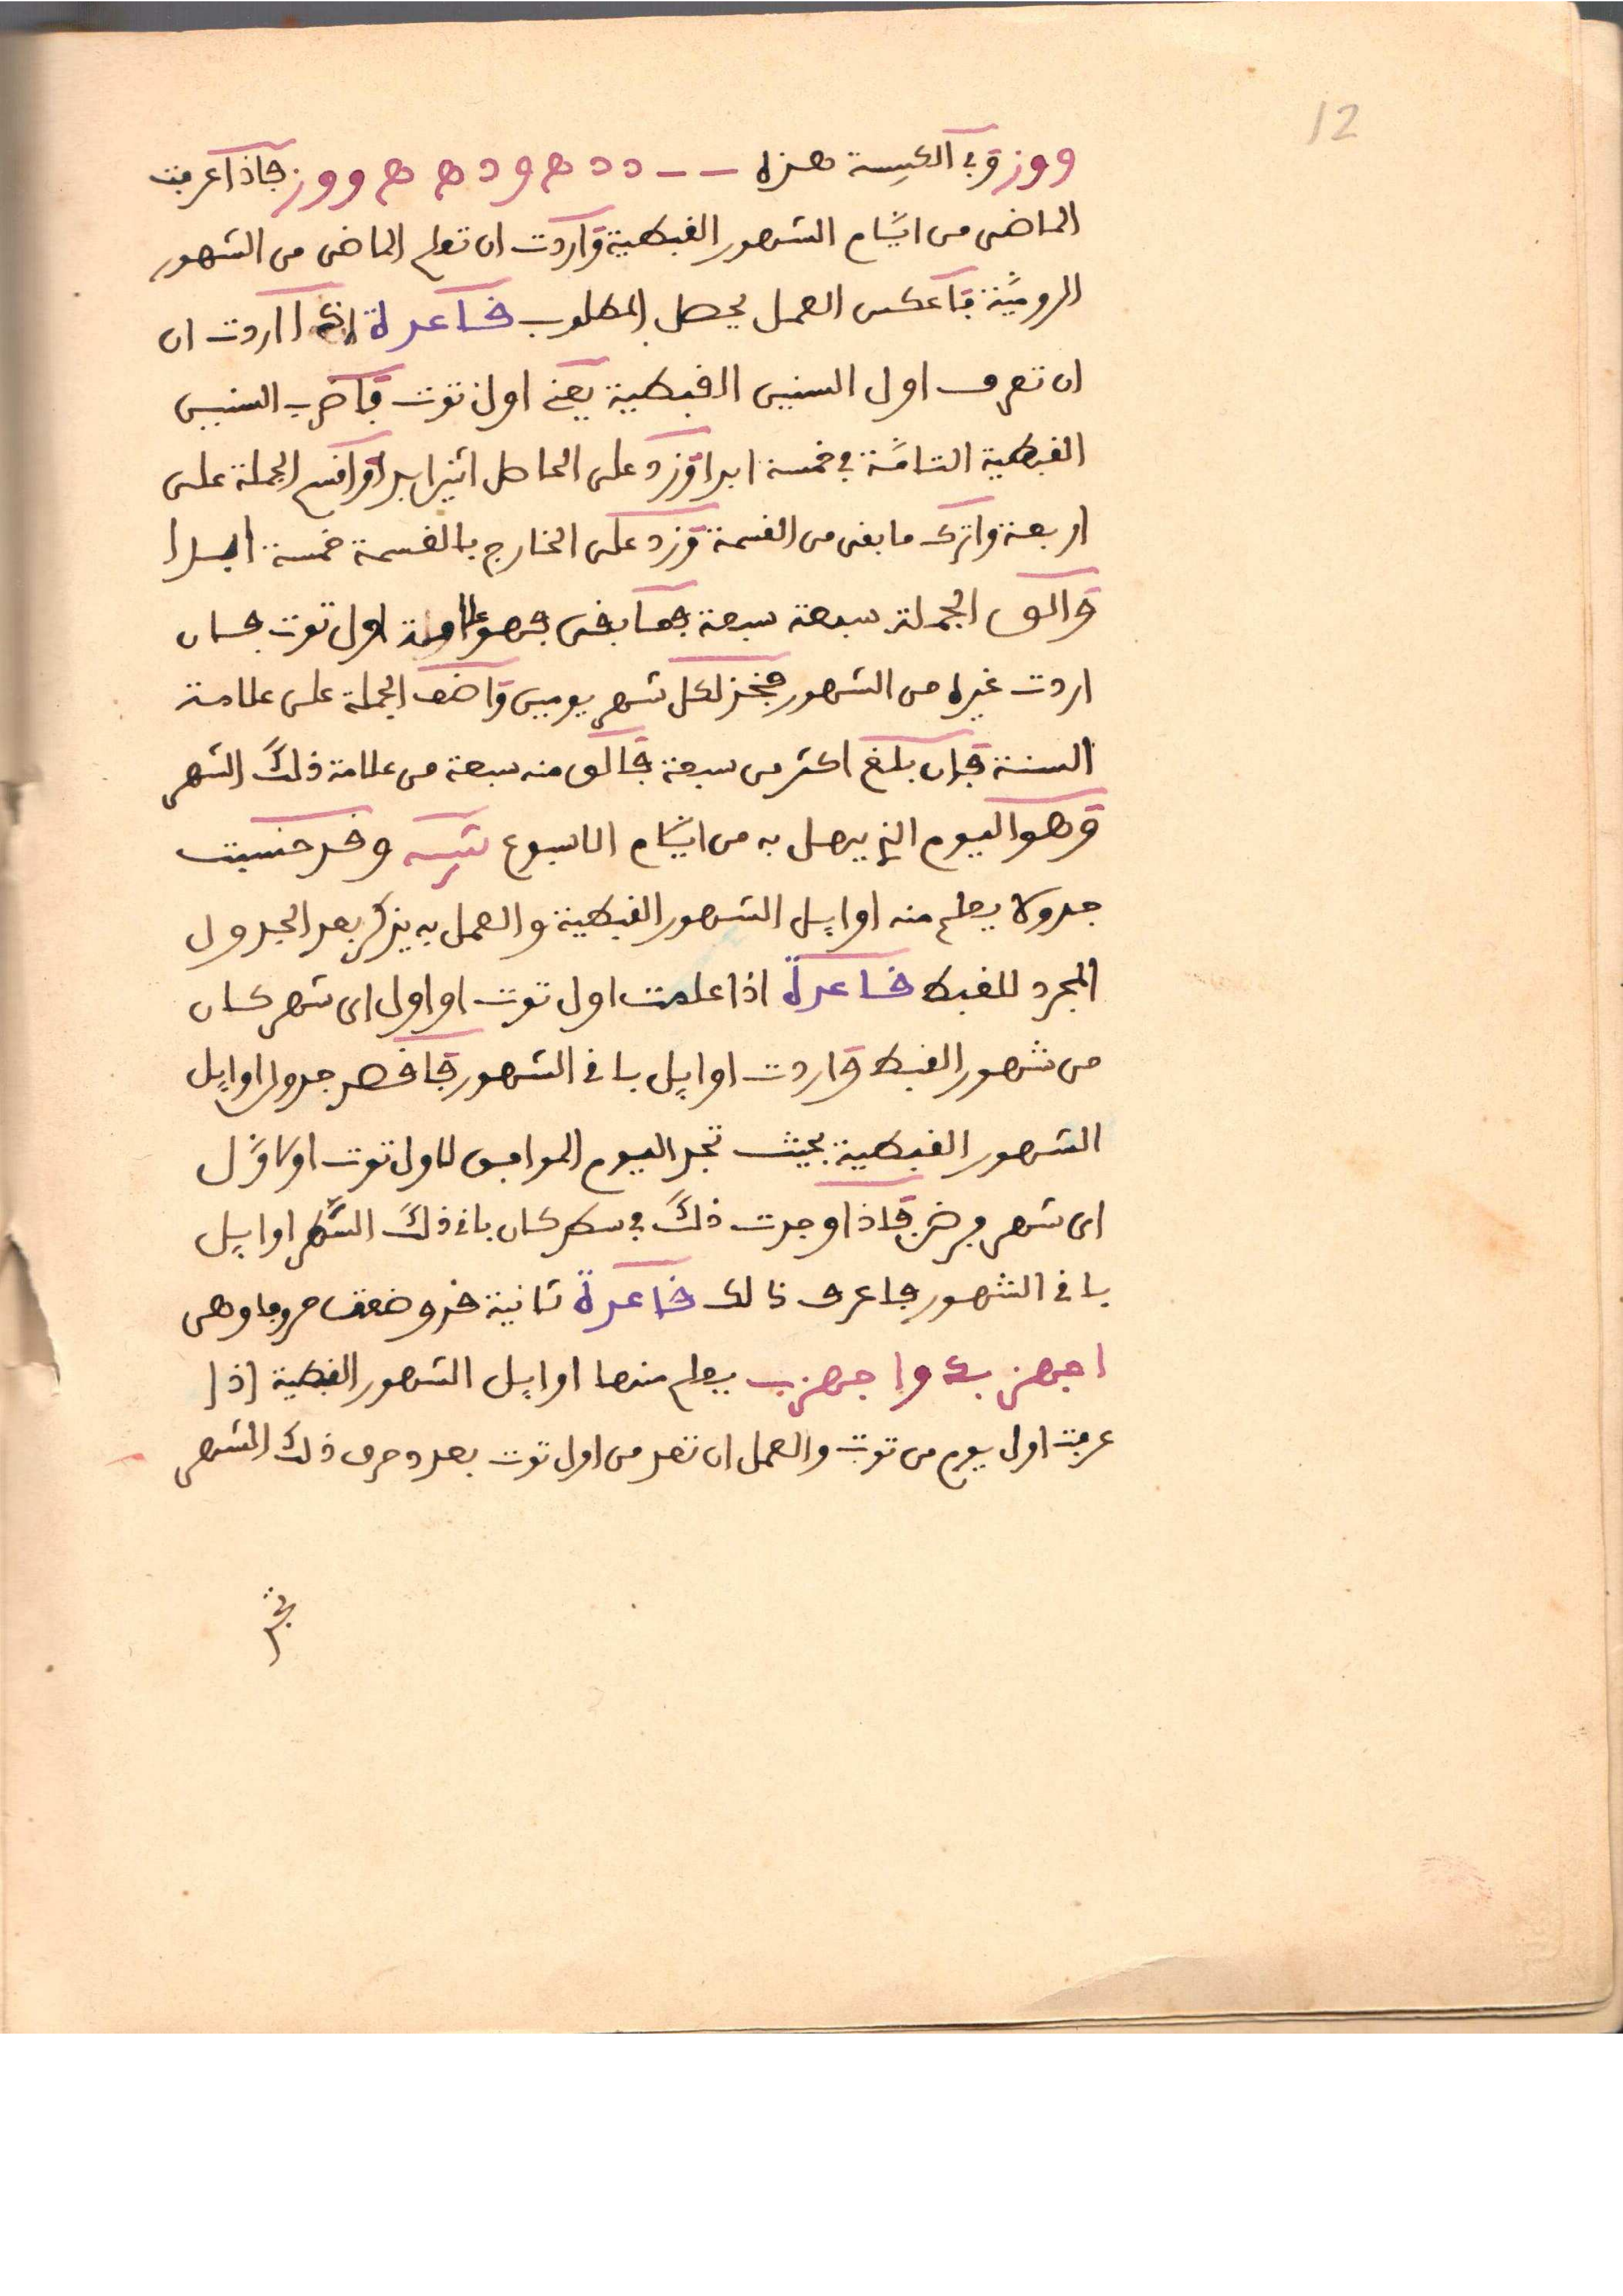 12
ووز وفي الكبيسة هذه – – د د ه و د ه ه و و ز فاذا عرفت
الماضى من ايام الشهور القبطية واردت ان تعلم الماضى من الشهور
الرومية فاعكس العمل يحصل المطلوب قاعدة اذا اردت ان
ان تعرف اول السنين القبطية يعنى اول توت فاضرب السنين
القبطية التامة في خمسة ابدا وزد على الحاصل اثنين ابدا واقسم الجملة على
اربعة واترك ما بقى من القسمة وزد على الخارج بالقسمة خمسة ابدا
والق الجملة سبعة سبعة فما بقى فهو علامة اول توت فان
اردت غيره من الشهور فخذ لكل شهر يومين واضف الجملة على علامة
السنة فان بلغ اكثر من سبعة فالق منه سبعة من علامة ذلك الشهر
وهو اليوم الذي يهل به من ايام الاسبوع تنبيه وقد حسبت
جدولا يعلم منه اوايل الشهور القبطية والعمل به يذكر بعد الجدول
المجرد للقبط قاعدة اذا علمت اول توت او اول اى شهر كان
من شهور القبط واردت اوايل باقى الشهور فاقصد جدول اوايل
الشهور القبطية بحيث تجد اليوم الموافق لاول توت او لاول
اى شهر فرض فاذا وجدت ذلك في سطر كان باقى ذلك السطر اوايل
باقى الشهور فاعرف ذالك قاعدة ثانية قد وضعت حروفا وهى
اجهز بد واجهزب يعلم منها اوايل الشهور القبطية اذا
عرفت اول يوم من توت والعمل ان تعد من اول توت بعدد حرف ذلك الشهر